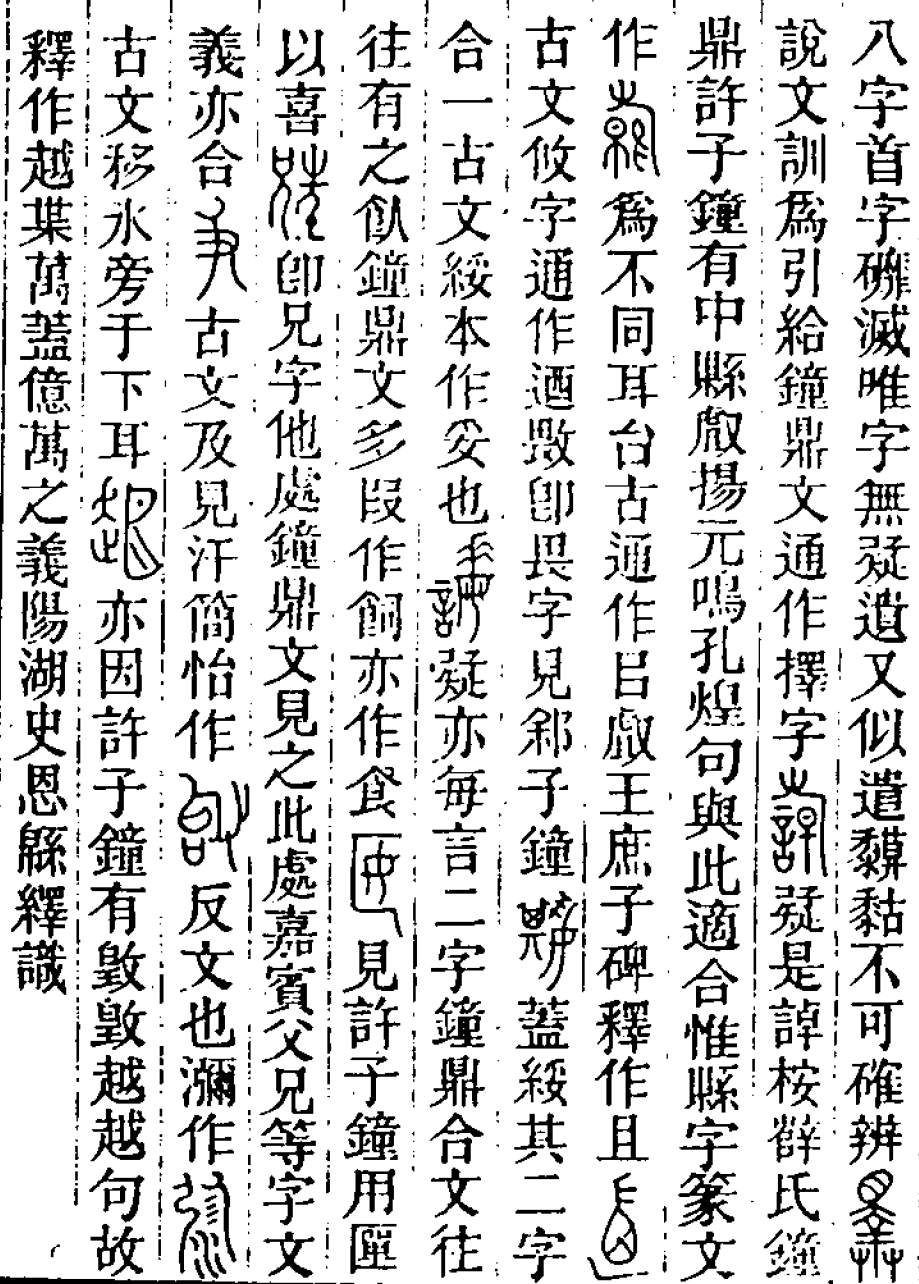 八字首字磨滅唯字無疑遺又似遣顡黏不可確辨
說文訓爲引給鐘鼎文通作擇字疑是諱桉薛氏鐘
鼎許子鐘有中縣戲揚元鳴孔煌句與此適合惟縣字篆文
作爲不同耳台古通作㠯戲王庶子碑釋作且
古文攸字通作逎斁卽畏字見鄦子鐘蓋綏其二字
合一古文綏本作妥也疑亦每言二字鐘鼎合文往
往有之飤鐘鼎文多叚作飼亦作食見許子鐘用匽
以喜卽兄字他處鐘鼎文見之此處嘉賓父兄等字文
義亦合古文及見汗簡怡作反文也瀰作
古文移水旁于下耳亦因許子鐘有斁斁越越句故
釋作越枼萬蓋億萬之義陽湖史恩緜繹識